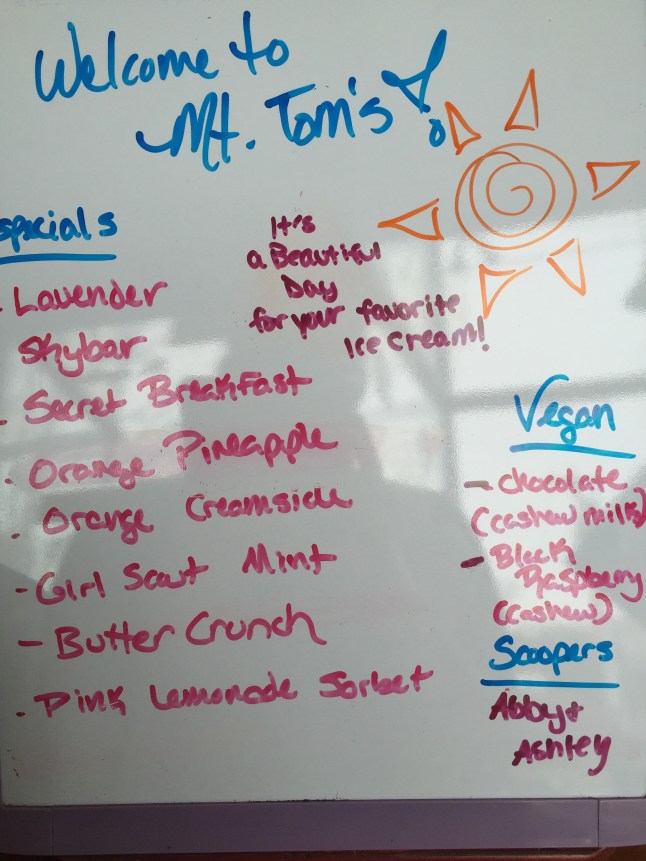 Welcome to
Mt. Tom's!
Specials
- Lavender
Skybar
- Secret Breakfast
- Orange Pineapple
- Orange Creamsicle
- Girl Scout Mint
- Butter Crunch
- Pink Lemonade Sorbet
It's
a Beautiful
Day
for your favorite
Ice cream!
Vegan
- Chocolate
(cashew milk)
- Black
Raspberry
(cashew)
Scoopers
Abby +
Ashley